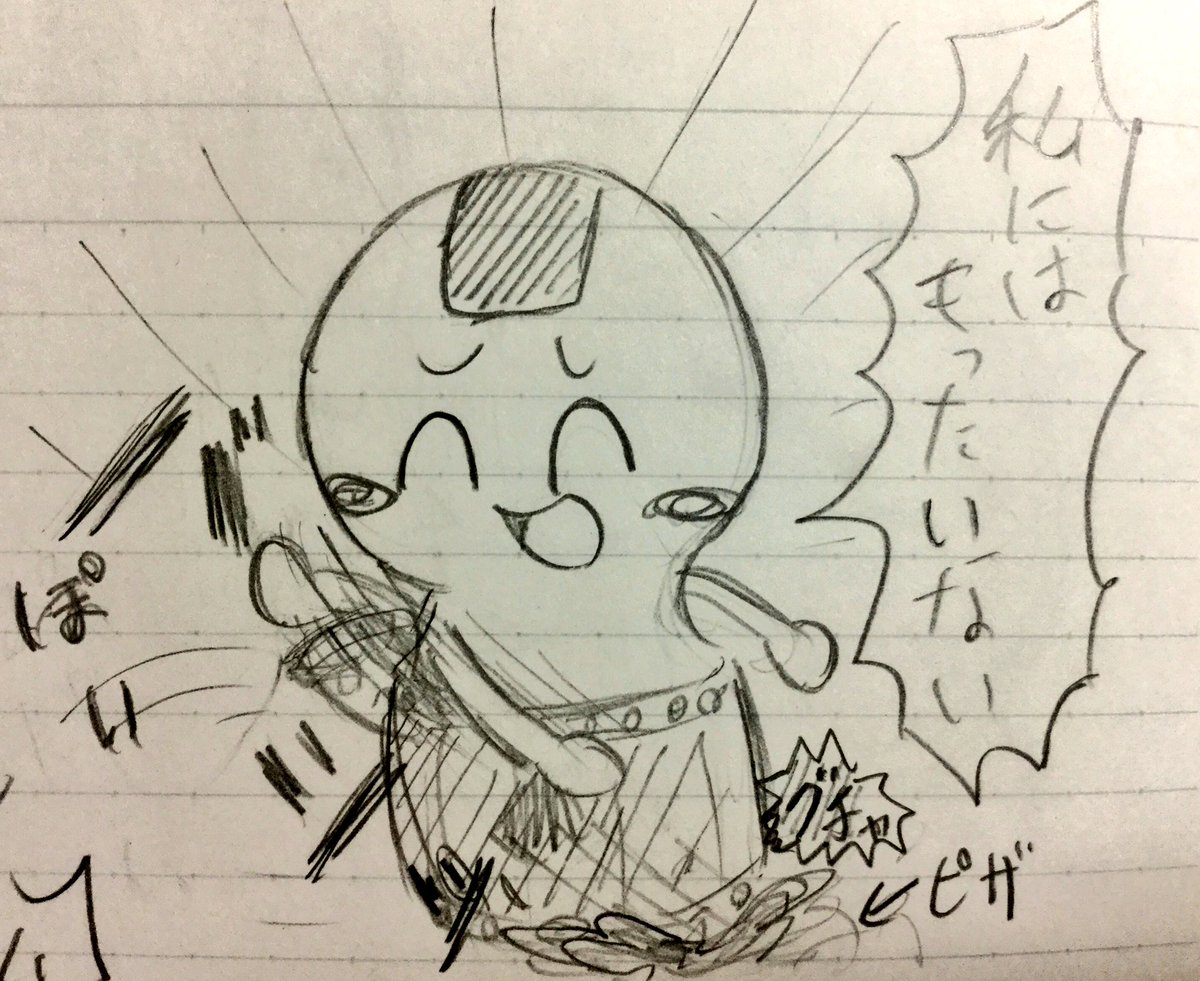 私には
もったいない
ぽい
グチャ
ピザ